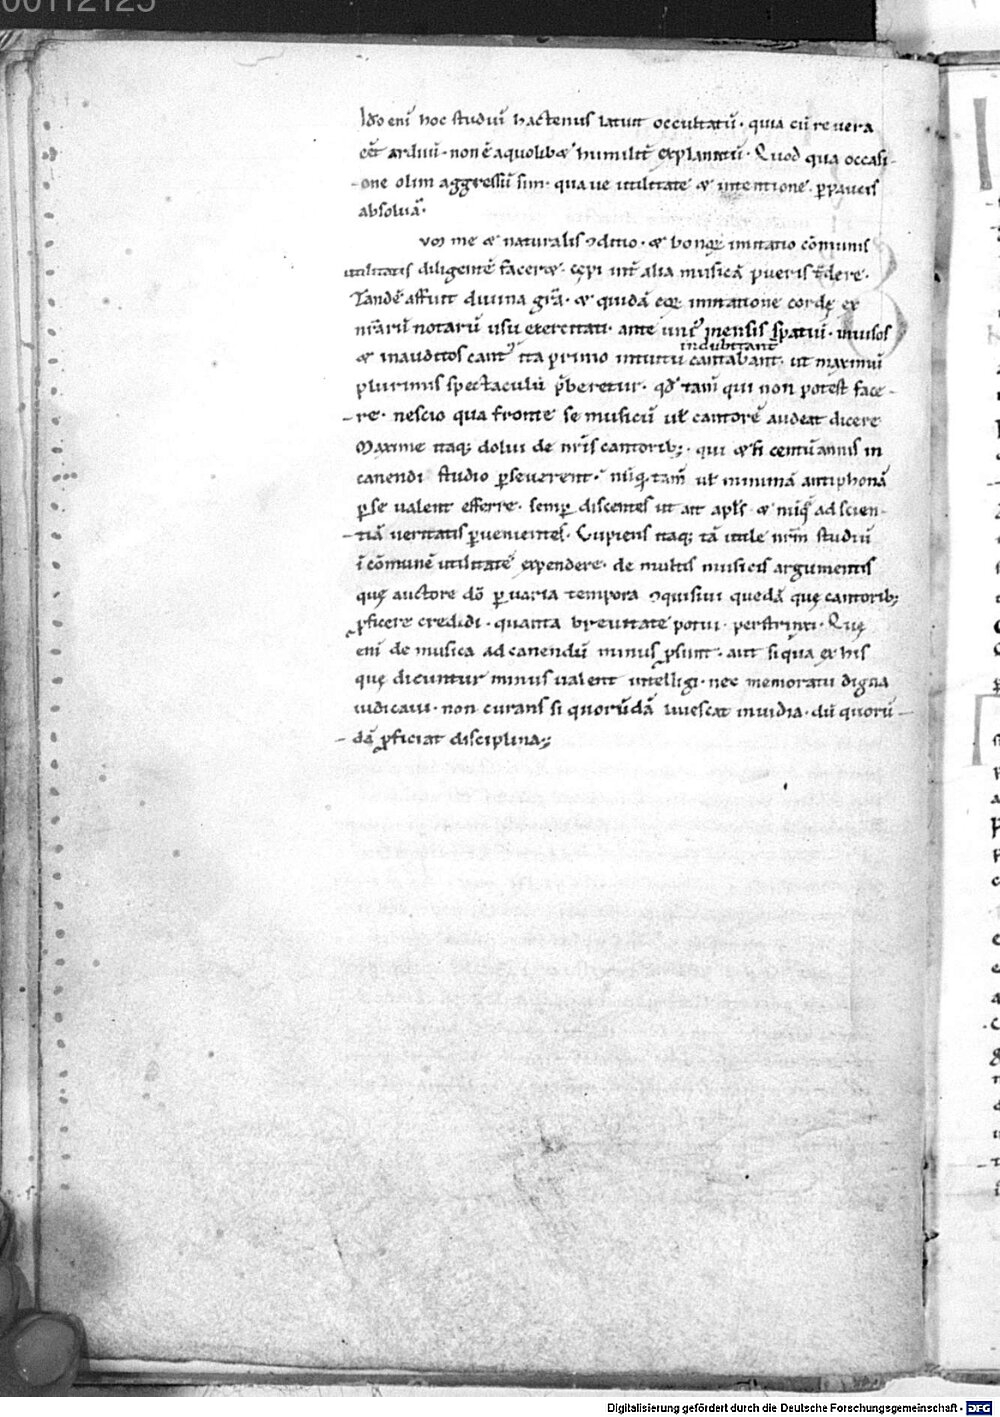 00112125
Ido enī hoc studiū hactenus latuit occultatū · quia cū re vera
eēt arduū · non ē a quolibꝫ humilit̄ explanatū · Quod qua occasi-
-one olim aggressus sim · quave utilitate & intentione · ꝑpaucis
absolvā ·
vm me & naturalis ↄditio · & bonoꝝ imitatio cōmunis
utilitatis diligentē faceret · cępi int̄ alia musicā pueris t̄dere ·
Tandē affuit divina grā · & quidā eoꝝ imitatione cordę ex
nr̄arū notarū usu exercitati · ante uniꝰ mensis spatiū · invisos
indubitant̄
& inauditos cantꝰ ita primo intuitu cantabant · ut maximū
plurimis spectaculū p̄beretur · qđ tam̄ qui non potest face-
-re · nescio qua fronte se musicū ul̄ cantorē audeat dicere
Maxime itaqꝫ dolui de nr̄is cantoribꝫ · qui & si centū annis in
canendi studio ꝑseverent · nūqꝫ tam̄ ul̄ minimā antiphonā
ꝑ se valent efferre · semꝑ discentes ut ait apl̄s · & nūqꝫ ad scien-
-tiā veritatis ꝑvenientes · Cupiens itaqꝫ tā utile nr̄m studiū
ī cōmunē utilitatē expendere · de multis musicis argumentis
quę auctore dō ꝑ varia tempora ↄquisivi quedā quę cantoribꝫ
ꝓficere credidi · quanta brevitate potui · perstrinxi · Quę
enī de musica ad canendū minus ꝓsunt · aut si qua ex his
quę dicuntur minus valent intelligi · nec memoratu digna
iudicavi · non curans si quorūdā livescat invidia · dū quorū-
-dā ꝓficiat disciplina ;
Digitalisierung gefördert durch die Deutsche Forschungsgemeinschaft - DFG